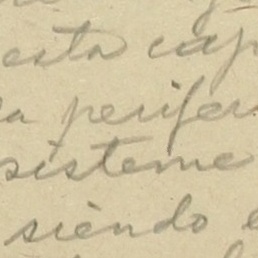 esta cap
a perifer
sisteme
siendo e